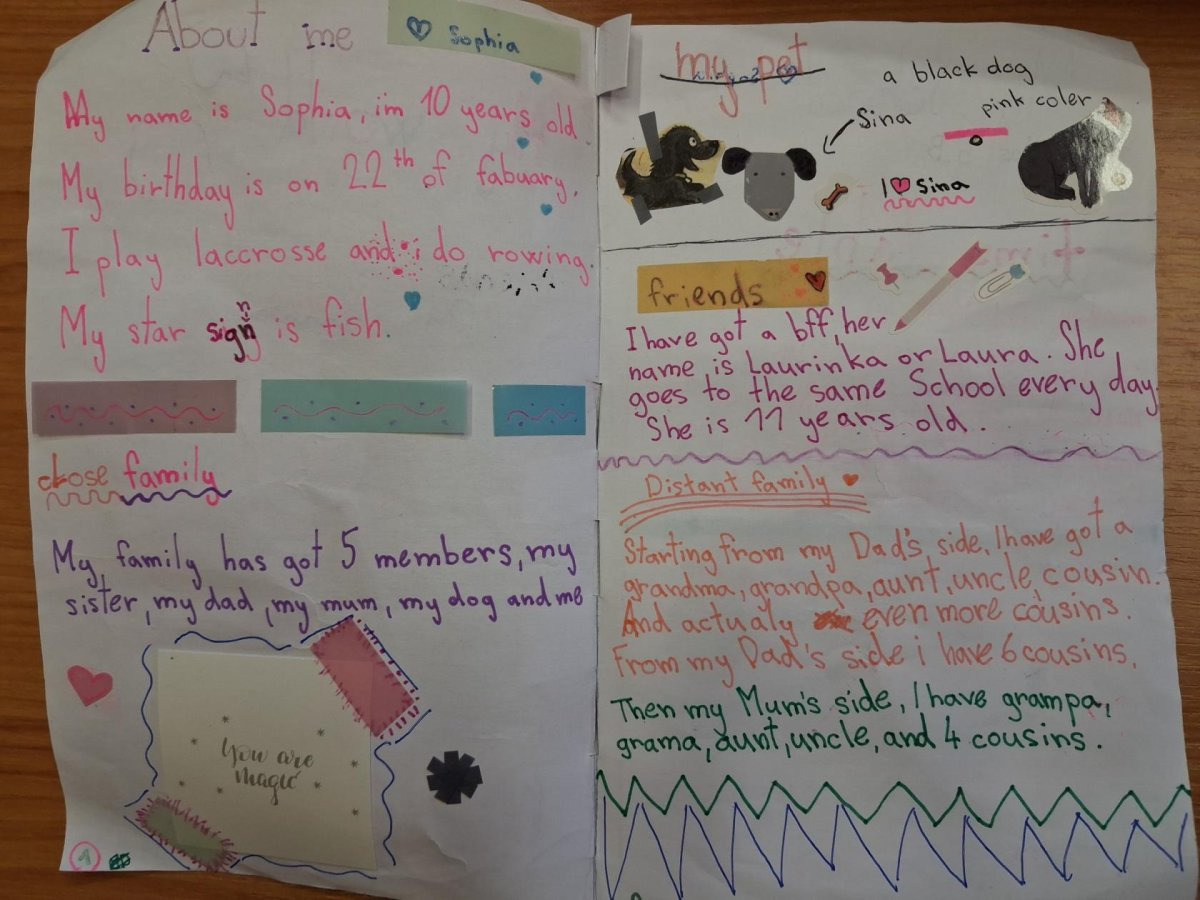 About me
Sophia
My name is Sophia, im 10 years old
My birthday is on 22th of fabuary.
I play laccrosse and i do rowing.
My star sign is fish.
close family
My family has got 5 members, my
sister, my dad, my mum, my dog and me
You are
magic
1
my pet
a black dog
pink coler
Sina
I ♥ Sina
friends
I have got a bff, her
name is Laurinka or Laura. She
goes to the same School every day
She is 11 years old.
Distant family
Starting from my Dad's side, I have got a
grandma, grandpa, aunt, uncle, cousin.
And actualy even more cousins.
From my Dad's side i have 6 cousins.
Then my Mum's side, I have grampa,
grama, aunt, uncle, and 4 cousins.